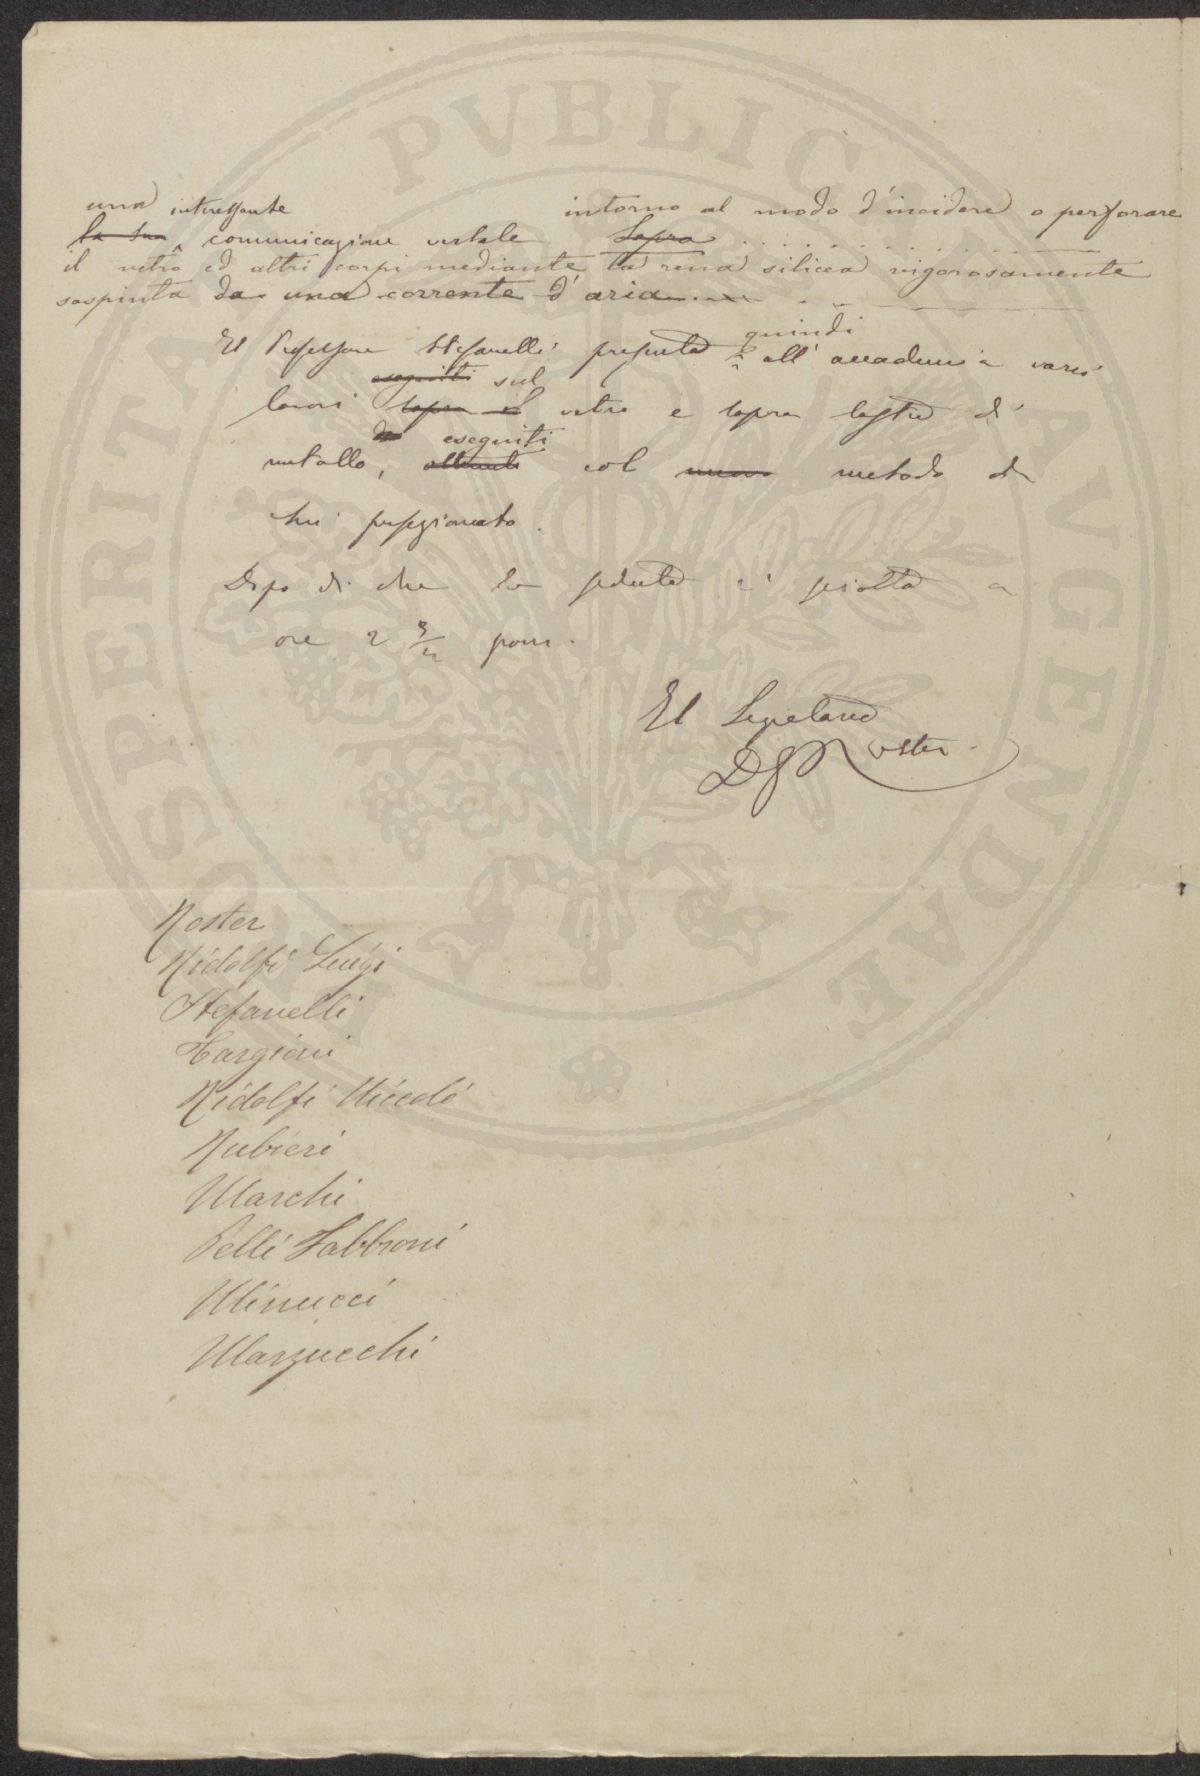 una interessante intorno al modo d'incidere o perforare
la sua comunicazione verbale sopra
il vetro ed altri corpi mediante la rena silicea vigorosamente
sospinta da una corrente d'aria
quindi
Il Professore Stefanelli presentò all'accademia varii
eseguiti sul
lavori sopra il vetro e sopra lastre di
eseguiti
metallo, ottenuti col nuovo metodo di
lui perfezionato.
Dopo di che la seduta è sciolta a
ore 2 pom.
Il Segretario
D G Roster
Roster
Ridolfi Luigi
Stefanelli
Targioni
Ridolfi Niccolò
Rubieri
Marchi
Pelli Fabbroni
Minucci
Marzucchi
PROSPERITATI PVBLICAE AVGENDAE